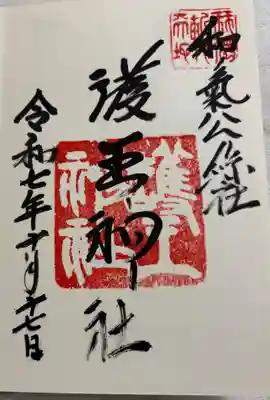 和氣公綜社
護王神社
護王神社
令和七年十月十七日